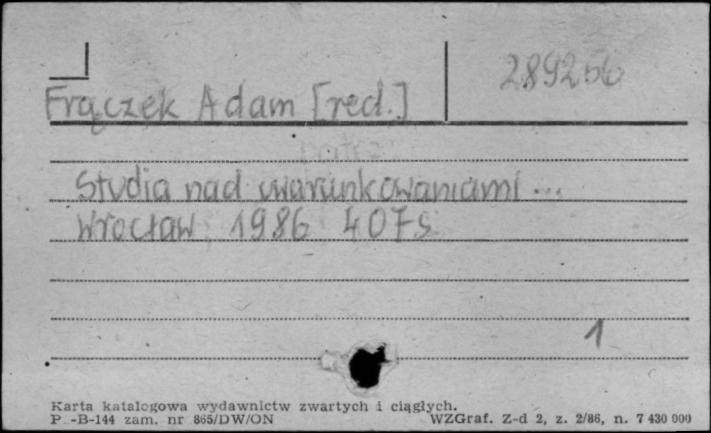 289256
Frączek Adam [red.]
patrz
Studia nad uwarunkowaniami...
Wrocław 1986 407s
1
Karta katalogowa wydawnictw zwartych i ciągłych.
P.-B-144 zam. nr 865/DW/ON WZGraf. Z-d 2, z. 2/86, n. 7 430 000